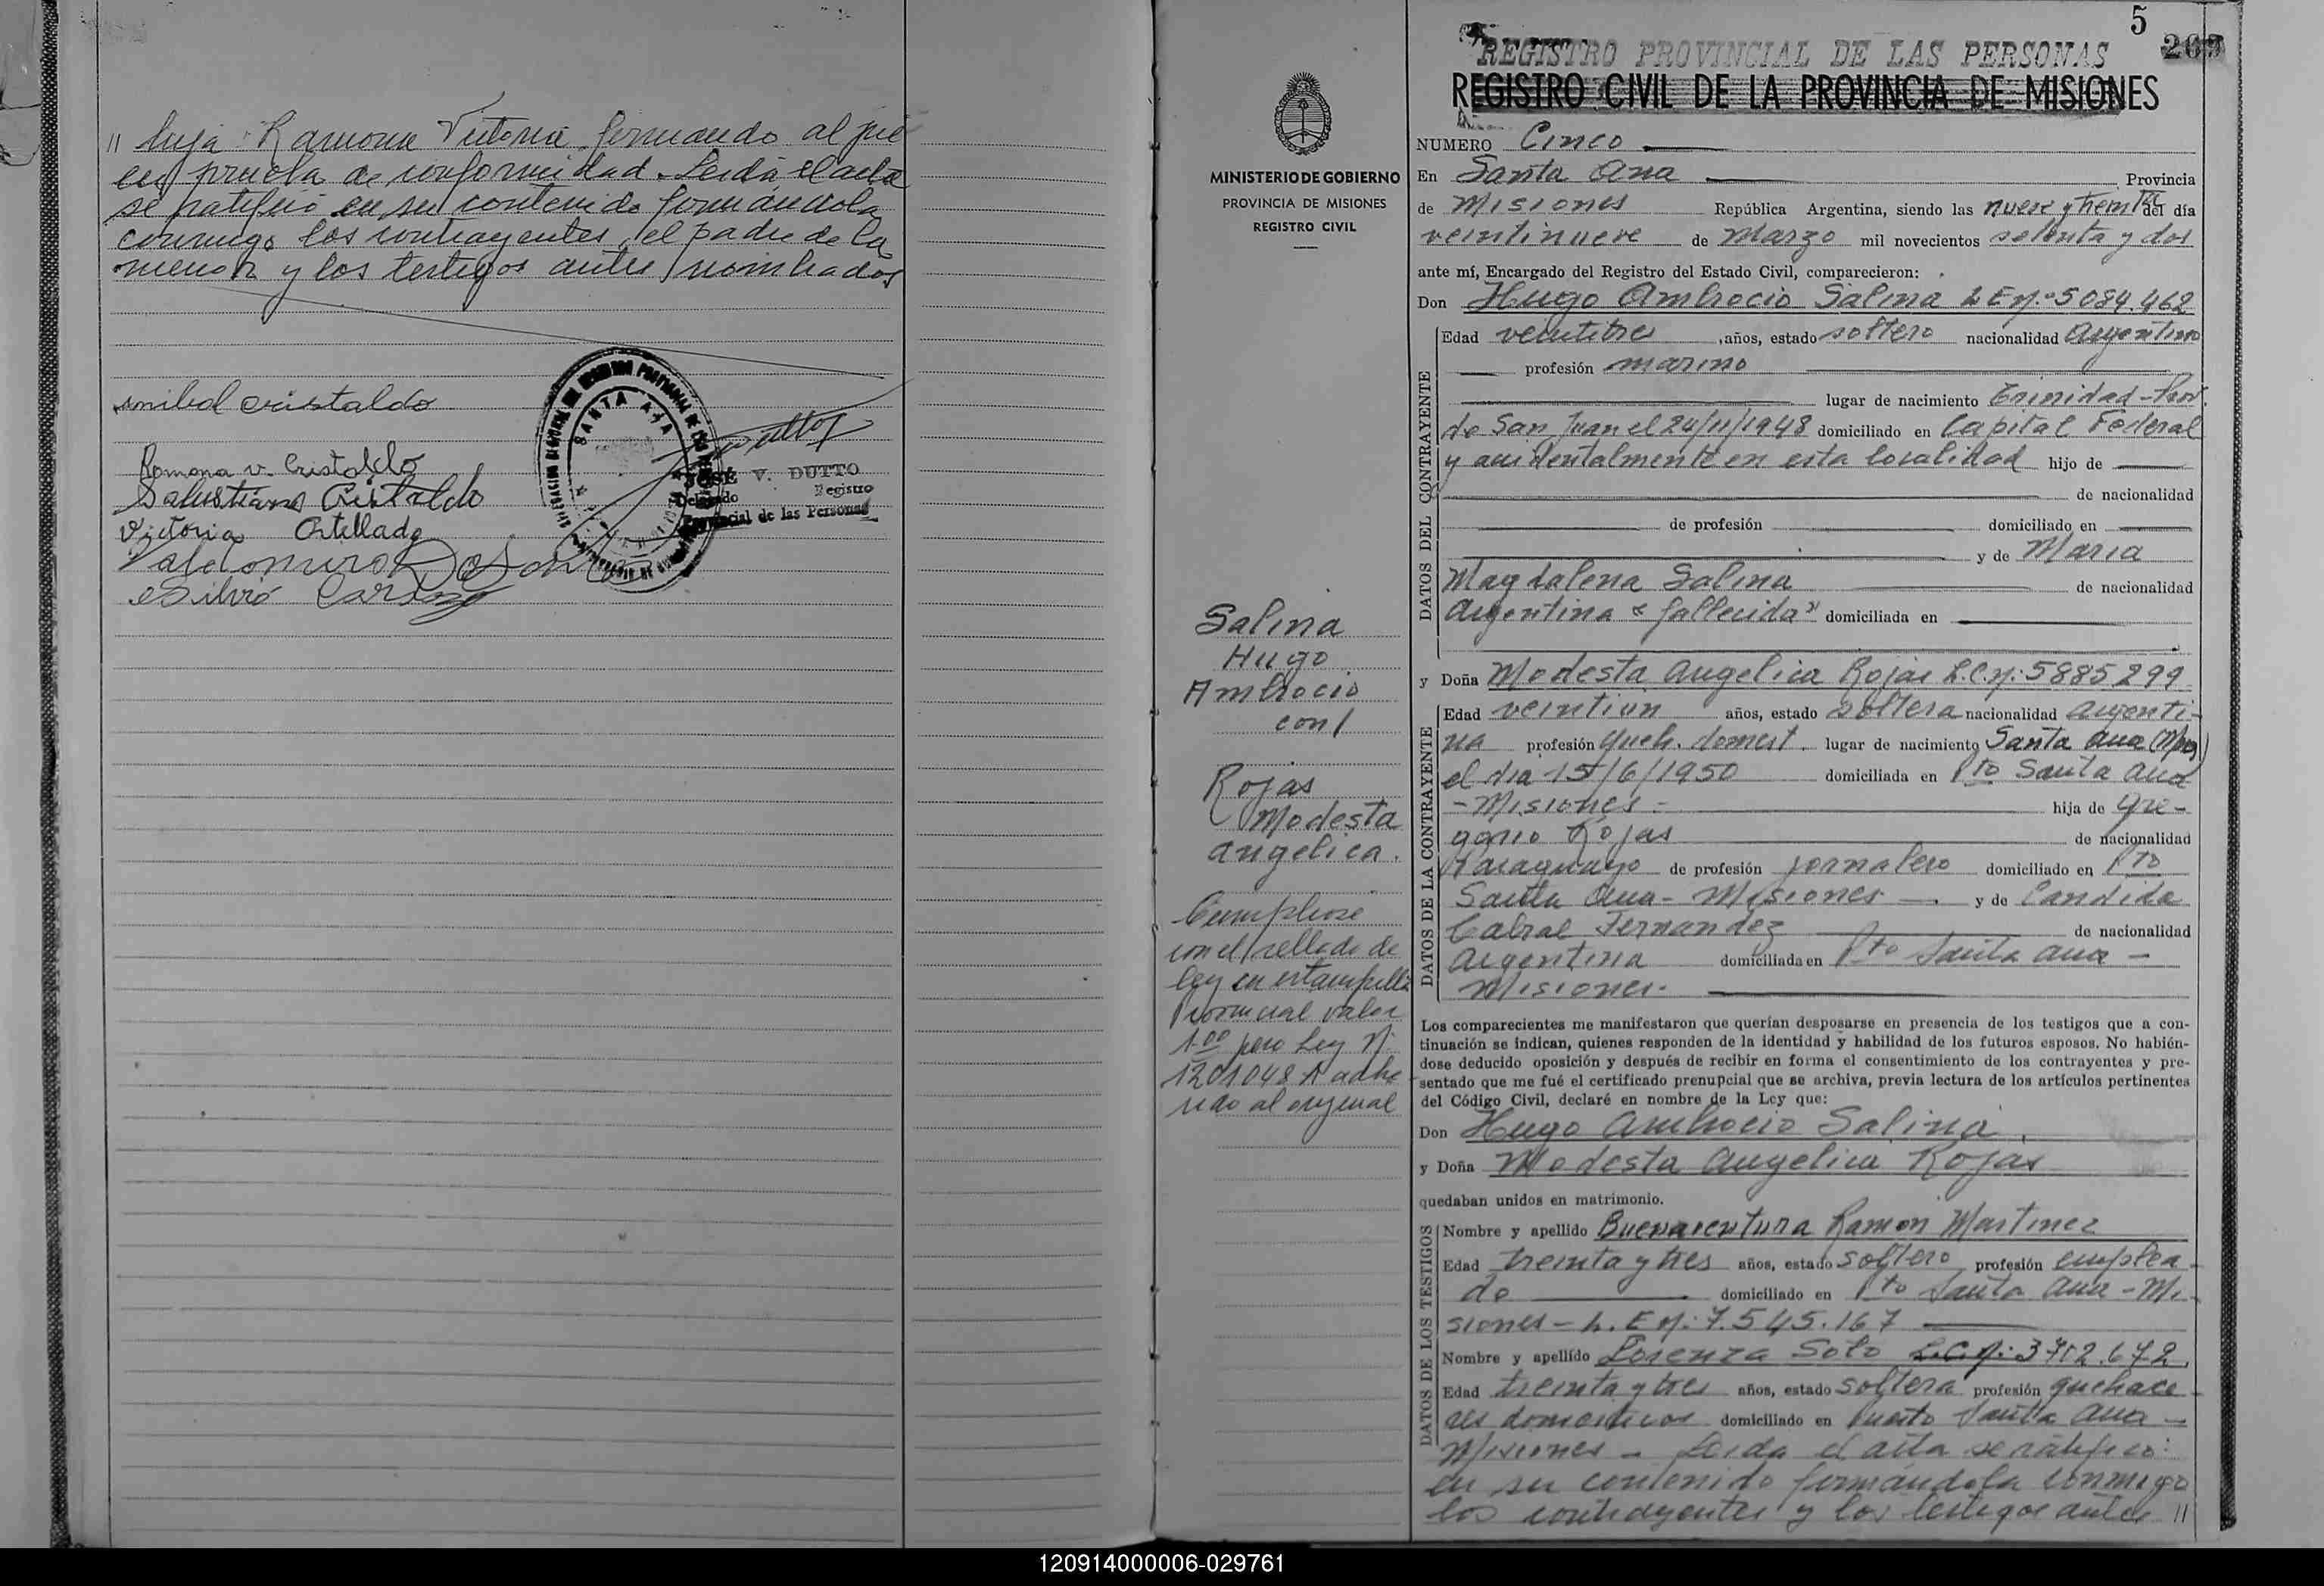 " hija Ramona Victoria firmando al pie
en prueba de conformidad. Leida el acta
se ratificó en su contenido firmándola
conmigo los contrayentes, el padre de la
menor y los testigos antes nombrados
anibal cristaldo
Ramona v. Cristaldo
Salustiano Cristaldo
Victoria Ortellado
Valdomiro
Silvio Cardozo
SANTA ANA
JOSÉ V. DUTTO
Delegado Registro
Provincial de las Personas
5
269
REGISTRO PROVINCIAL DE LAS PERSONAS
REGISTRO CIVIL DE LA PROVINCIA DE MISIONES
MINISTERIO DE GOBIERNO
PROVINCIA DE MISIONES
REGISTRO CIVIL
Salina
Hugo
Ambrocio
con/
Rojas
Modesta
Angelica.
Cumpliose
con el sellado de
ley en estampilla
Provincial valor
1.00 peso Ley Nº
1201048 A adhe
rido al original
NUMERO Cinco
En Santa Ana Provincia
de Misiones República Argentina, siendo las nueve y treinta del día
veintinueve de Marzo mil novecientos setenta y dos
ante mí, Encargado del Registro del Estado Civil, comparecieron:
Don Hugo Ambrocio Salina L E Nº 5084.462
DATOS DEL CONTRAYENTE
Edad veintitres, años, estado soltero nacionalidad Argentino
profesión marino
lugar de nacimiento Trinidad - Prov.
de San Juan el 24/11/1948 domiciliado en Capital Federal
y accidentalmente en esta localidad hijo de
de nacionalidad
de profesión domiciliado en
y de Maria
Magdalena Salina de nacionalidad
Argentina "fallecida" domiciliada en
y Doña Modesta Angelica Rojas L.C.Nº: 5885.299
DATOS DE LA CONTRAYENTE
Edad veintiun años, estado soltera nacionalidad argenti-
na profesión Queh. domest. lugar de nacimiento Santa Ana (Mnes)
el dia 15/6/1950 domiciliada en Pto Santa Ana
- Misiones - hija de Gre-
gorio Rojas de nacionalidad
Paraguayo de profesión jornalero domiciliado en Pto
Santa Ana - Misiones -. y de Candida
Cabral Fernandez de nacionalidad
Argentina domiciliada en Pto Santa Ana -
Misiones.
Los comparecientes me manifestaron que querían desposarse en presencia de los testigos que a con-
tinuación se indican, quienes responden de la identidad y habilidad de los futuros esposos. No habién-
dose deducido oposición y después de recibir en forma el consentimiento de los contrayentes y pre-
sentado que me fué el certificado prenupcial que se archiva, previa lectura de los artículos pertinentes
del Código Civil, declaré en nombre de la Ley que:
Don Hugo Ambrocio Salina.
y Doña Modesta Angelica Rojas
quedaban unidos en matrimonio.
DATOS DE LOS TESTIGOS
Nombre y apellido Buenaventura Ramon Martinez
Edad treinta y tres años, estado soltero profesión emplea-
do domiciliado en Pto Santa Ana - Mi-
siones - L. E Nº: 7.545.167
Nombre y apellido Lorenza Soto L.C.Nº: 3702.672
Edad treinta y tres años, estado soltera profesión quehace-
res domesticos domiciliado en Puerto Santa Ana -
Misiones - Leida el acta se ratifico:
en su contenido firmándola conmigo
los contrayentes y los testigos antes "
120914000006-029761